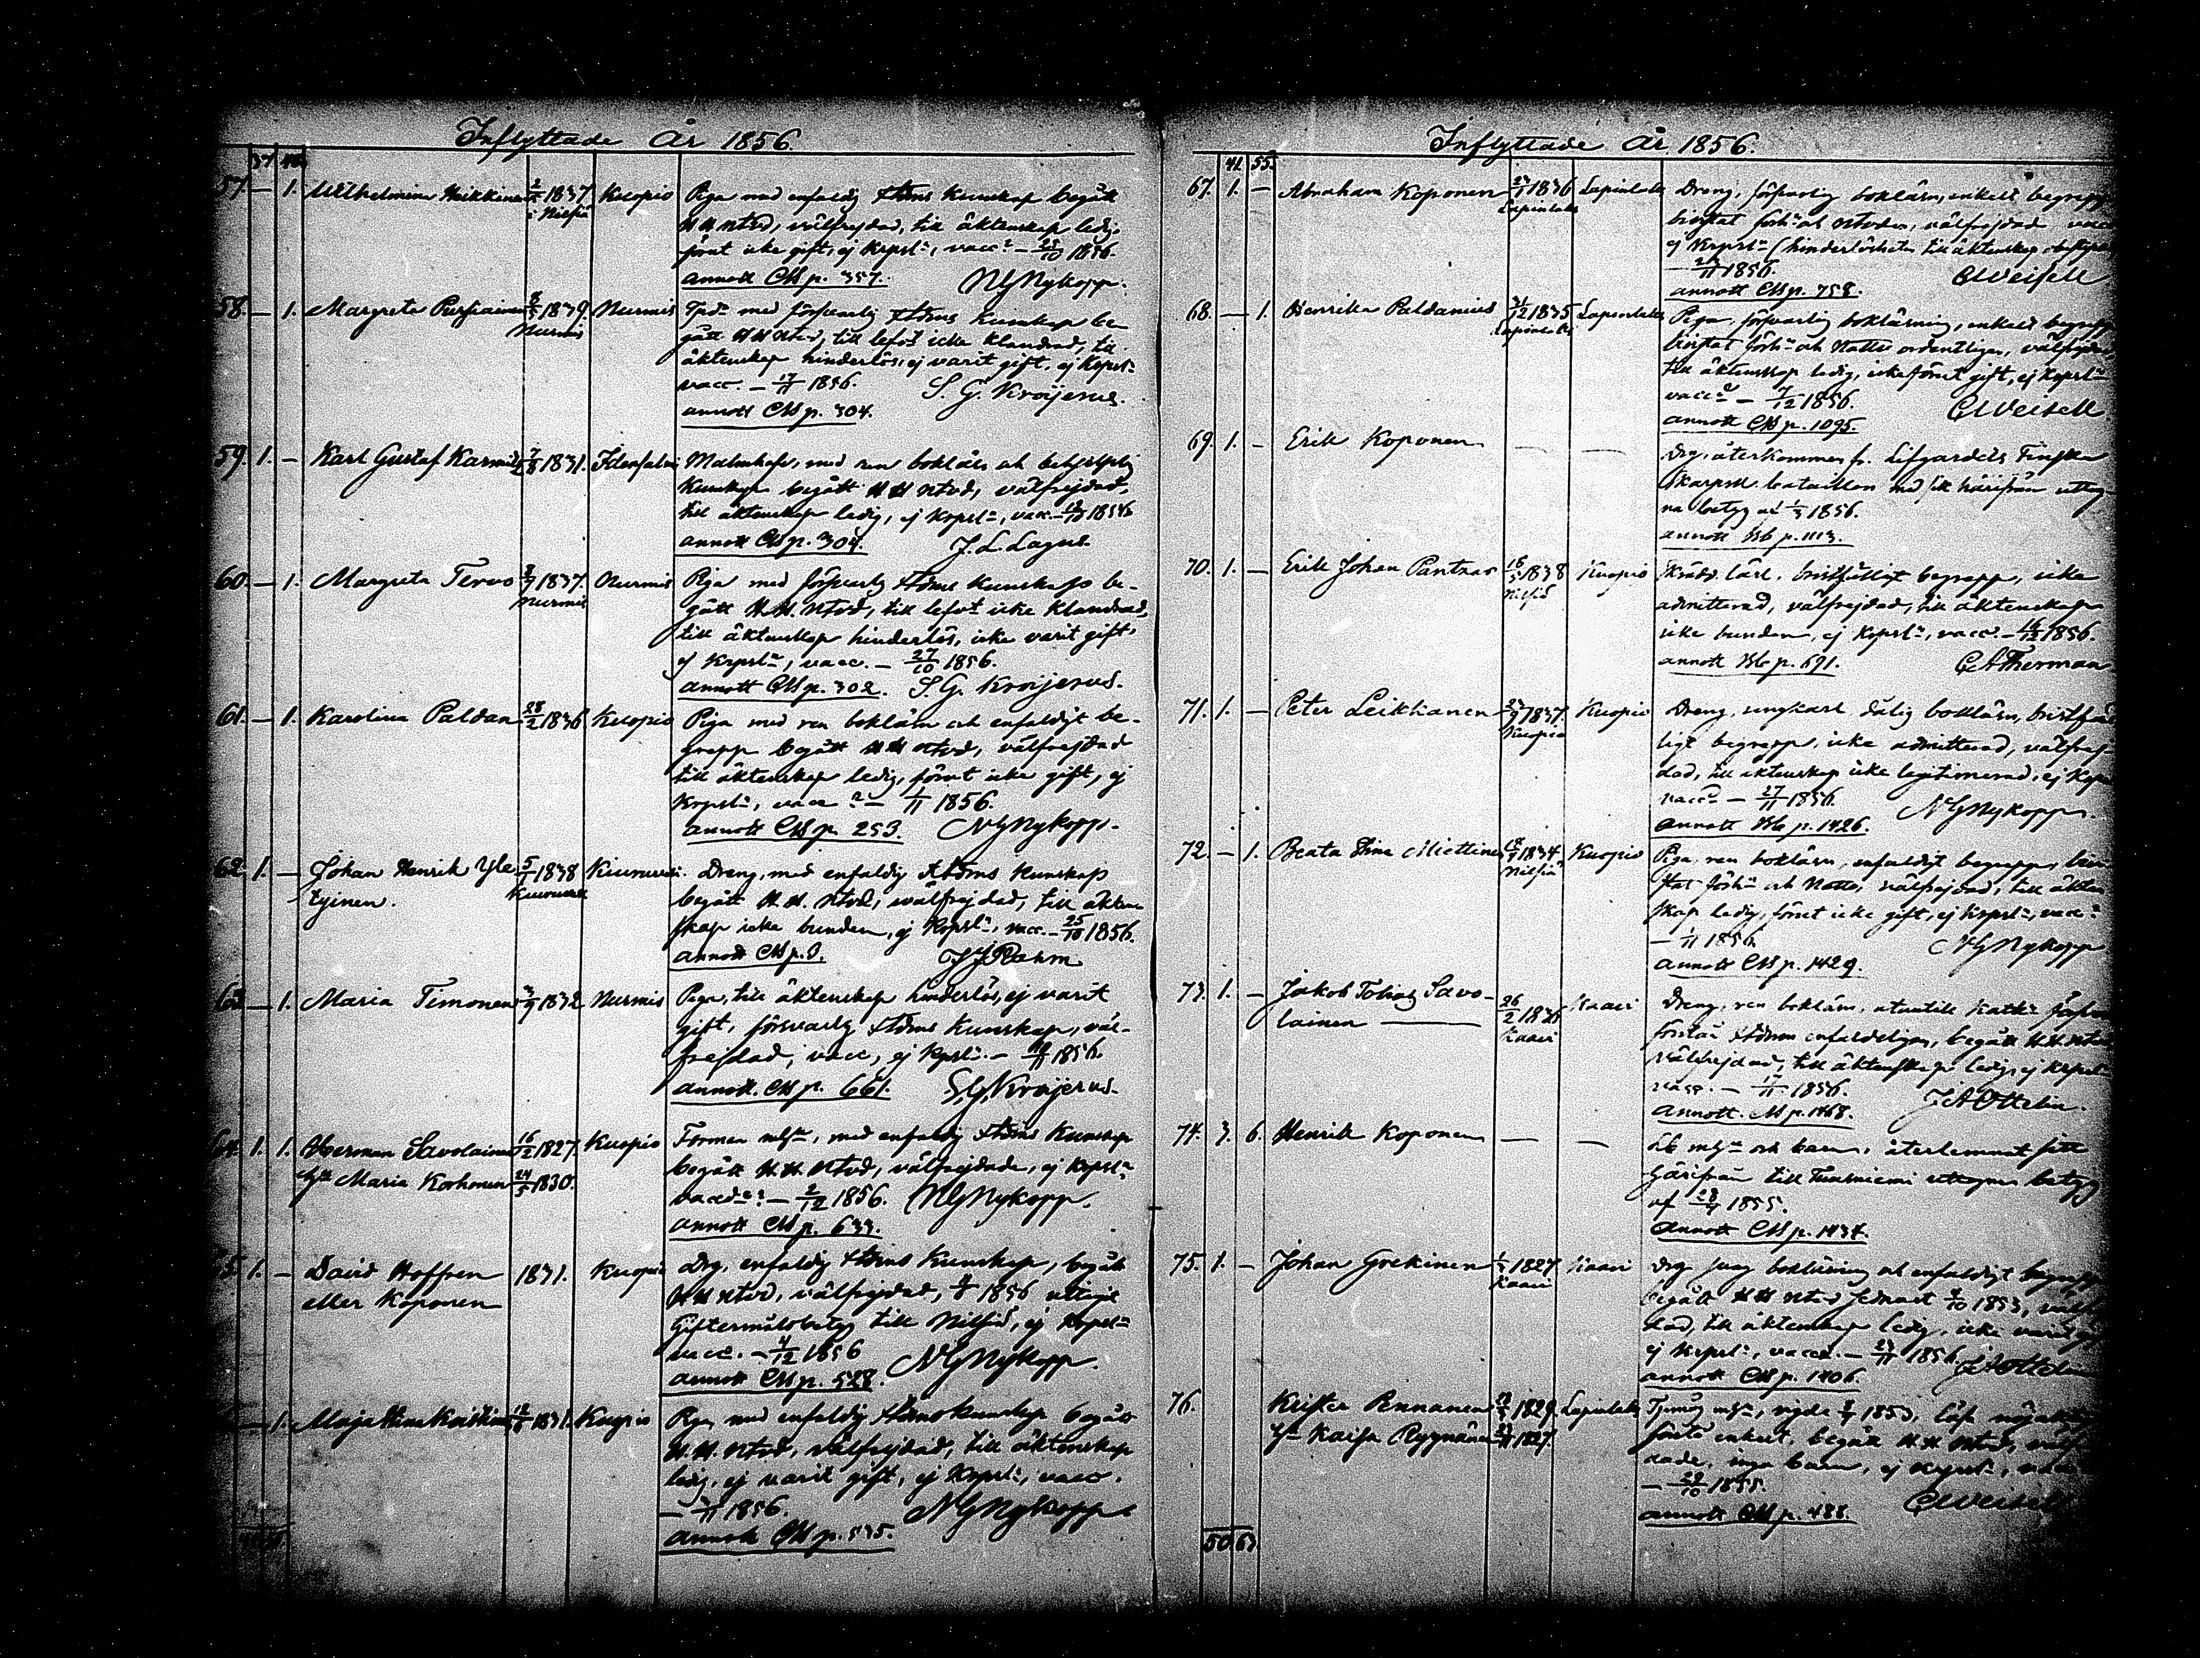 Inflyttade År 1856.
57. — 1. Wilhelmina Heikkinen 1837 i Nilsiä Kuopio Piga med enfaldig Kunskap begått
H H Nttvd, välfrejdad, till äktenskap ledig,
förut icke gift, ej Krpsl:n, vacc:d — 28/10 1856.
annott CM p. 357. NGNykopp.
58. — 1. Margreta 1839. Nurmis Nurmis med försvarlig Kunskap be-
gått H H Nttvd, till lefv:t icke klandrad, till
äktenskap hinderlös, ej varit gift, ej Krpsl:n
vacc. — 17/11 1856. S. G. Kroijerus.
annott CM p. 304.
59. 1. — Karl Gustaf 1831. Idensalmi med ren bokläs. och
Kunskap begått H H Nttvd, välfrejdad,
till äktenskap ledig, ej Krpsl:n, vacc. 1856
annott CM p. 304. J. L. Lagus.
60. — 1. Margreta Tervo 1837. Nurmis Nurmis Piga med försvarlig Kunskap be-
gått H. H. Nttvd, till lefv:t icke Klandrad,
till äktenskap hinderlös, icke varit gift,
ej Krpsl:n, vacc. — 27/10 1856.
annott CM p. 302. S. G. Kroijerus.
61. — 1. Karolina Paldan 28/2 1836. Kuopio Piga med ren bokläsn och enfaldigt be-
grepp begått H H Nttvd, välfrejdad
till äktenskap ledig, förut icke gift, ej
Krpsl:n, vacc — 1/11 1856.
annott CM p. 253. NGNykopp.
62. 1. — Johan Henrik Yle- 5/1 1838 Kiuruvesi Dreng, med enfaldig Kunskap
Eginen. begått H. H. Nttvd, välfrejdad, till äkten-
skap icke bunden, ej Krpsl:n, vacc. — 25/10 1856.
annott CM p. Rahm
63. — 1. Maria Timonen 1832 Nurmis Piga, till äktenskap hinderlös, ej varit
gift, försvarlig Kunskap, väl-
frejdad, vacc, ej Krpsl:n — 1856.
annott. CM p. 661. S. G. Kroijerus.
64. 1. 1. Herman Savolainen 16/12 1827. Kuopio med enfaldig Kunskap
H:u Maria Korhonen 24/5 1830. begått H. H. Nttvd, välfrejdade, ej Krpsl:n
— 2/12 1856. NGNykopp.
annott CM p. 633.
65. 1. — David Hoffren 1831. Kuopio Drg, enfaldig Kunskap, begått
eller Koponen H H Nttvd, välfrejdad, 1856 uttagit
Giftermålsbetyg till Nilsiä, ej Krpsl:n
vacc. — 4/12 1856 NGNykopp.
annott CM p. 528.
— 1. Maja Stina 1831. Kuopio Piga, med enfaldig Kunskap begått
H. H. Nttvd, välfrejdad, till äktenskap
ledig, ej varit gift, ej Krpsl:n, vacc.
1856. NGNykopp
annott CM p. 535.
Inflyttade År 1856.
41. 55.
67. 1. — Abraham Koponen 1836 Lapinlaks Lapinlaks Dreng, försvarlig bokläsn, enkelt begrepp
bivistat förh:r och Nttvden, välfrejdad vacc
ej Krpsl:n (hinderlösheten till äktenskap
1856. CWeisell
annott CM p. 758.
68. — 1. Henrika Paldanius 31/12 1835 Lapinlaks Lapinlaks Piga, försvarlig bokläsning, enkelt begrepp
bivistat förh:r och Nattv ordentligen, välfrejdad
till äktenskap ledig, icke förut gift, ej Krpsl:n
vacc:d — 7/12 1856. CWeisell
annott CM p. 1095.
69. 1. — Erik Koponen — — Drg, återkommen fr. Lifgardets Finska
Skarpsk. bataillon med sitt härifrån uttag-
na betyg af 1856.
annott Kb p. 1113.
70. 1. — Erik Johan Pantzar 1838 Nilsiä Kuopio lärl. bristfälligt begrepp, icke
admitterad, välfrejdad, till äktenskap
icke bunden, ej Krpsl:n, vacc. — 16/12 1856.
annott Kb p. 691. Therman
71. 1. — Peter Leikkanen 1837. Kuopio Kuopio Dreng, ungkarl, dålig bokläsn, bristfäl-
ligt begrepp, icke admitterad, välfrej-
dad, till äktenskap icke legitimerad, ej Krpsl
vacc:d — 27/11 1856. NGNykopp.
annott Kb p. 1426.
72. — 1. Beata Stina Miettinen 1834 Nilsiä Kuopio Piga, ren bokläsn, enfaldigt begrepp, bivi-
stat förh:r och Nattv, välfrejdad, till äkten-
skap ledig, förut icke gift, ej Krpsl:n, vacc:d
— 1/11 1856. NGNykopp
annott CM p. 1429.
73. 1. — Jakob Tobias Savo- 26/2 1836 Kaavi Kaavi Dreng, ren bokläsn, utantill
lainen förstår enfaldeligen, begått H. H. Nttvd
välfrejdad, till äktenskap ledig, ej Krpsl
vacc. — 1856. JAOttelin.
annott. CM p. 1468.
74. 3. 6. Henrik Koponen — — och barn, återlemnat sitt
härifrån till uttagna betyg
af 1855.
annott CM p. 1434.
75. 1. — Johan Grekinen 1827 Kaavi Kaavi Drg bokläsning och enfaldigt begrepp
begått H H Nttvd sednast 1853, välfrej-
dad, till äktenskap ledig, icke varit gift
ej Krpsl:n, vacc. — 1856. JAOttelin
annott CM p. 1406.
76. Krister Pennanen 1829. Lapinlaks vigde 1853,
H:u Kaisa 1827. enkelt, begått H H Nttvd, välfrej-
dade, inga barn, ej Krpsl:n, vacc
— 29/10 1855. CWeisell
annott CM p. 488.
50. 63.